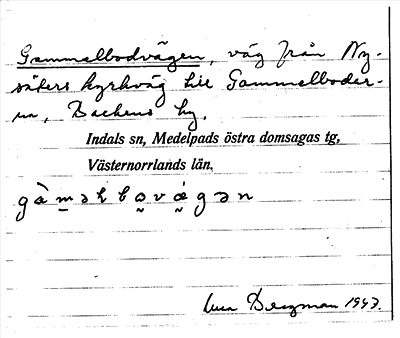 Gammelbodvägen, väg från Ny-
såkers kyrkväg till Gammelboder-
na, Backens by.
Indals sn, Medelpads östra domsagas tg,
Västernorrlands län,
Bergman 1943.